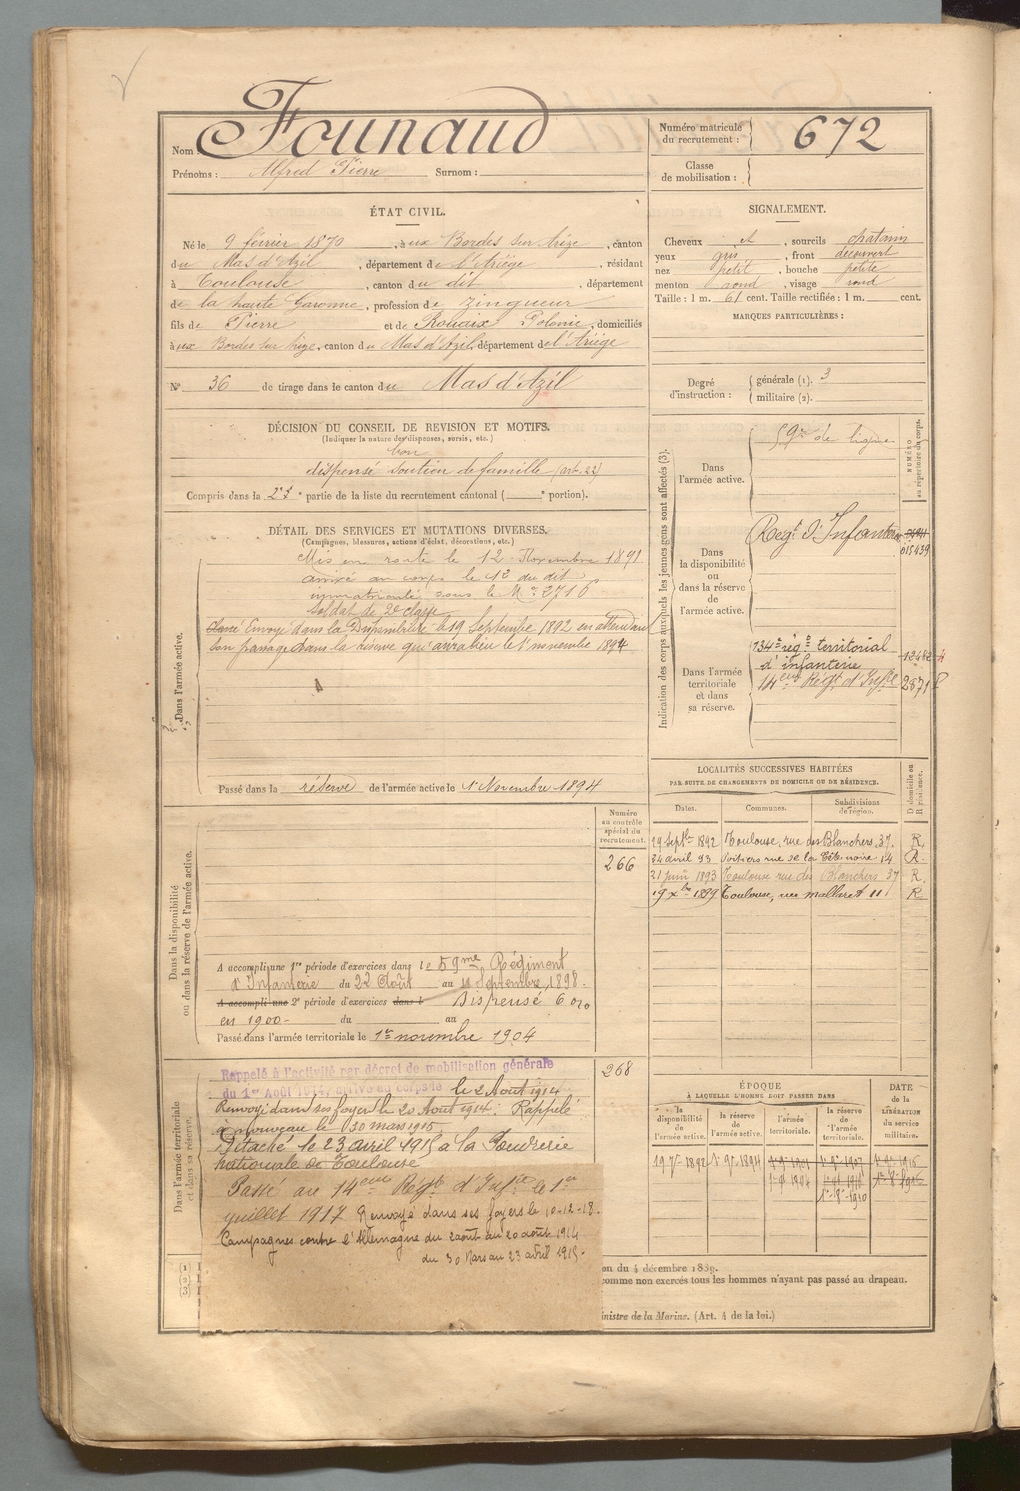 Nom : Founaud
Prénoms : Alfred Pierre Surnom :
Numéro matricule du recrutement : 672
Classe de mobilisation :
ÉTAT CIVIL.
Né le 9 février 1870, à ux Bordes sur Arize, canton
du Mas d'Azil, département de l'Ariège, résidant
à Toulouse, canton du dit, département
de la haute Garonne, profession de zingueur
fils de Pierre et de Rouaix Polonie, domiciliés
à ux Bordes sur Arize, canton du Mas d'Azil, département de l'Ariège
N° 36 de tirage dans le canton du Mas d'Azil
SIGNALEMENT.
Cheveux et, sourcils chatains
yeux gris, front découvert
nez petit, bouche petite
menton rond, visage rond
Taille : 1 m. 61 cent. Taille rectifiée : 1 m. cent.
MARQUES PARTICULIÈRES :
Degré d'instruction : générale (1). 3
militaire (2).
DÉCISION DU CONSEIL DE REVISION ET MOTIFS.
(Indiquer la nature des dispenses, sursis, etc.)
bon
dispensé soutien de famille (art. 22)
Compris dans la 2e partie de la liste du recrutement cantonal ( e portion).
DÉTAIL DES SERVICES ET MUTATIONS DIVERSES.
(Campagnes, blessures, actions d'éclat, décorations, etc.)
Dans l'armée active.
Mis en route le 12 Novembre 1891
arrivé au corps le 12 du dit
immatriculé sous le N° 2716
soldat de 2e classe
Classé Envoyé dans la Disponibilité le 19 Septembre 1892 en attendant
son passage dans la réserve qui aura lieu le 1er novembre 1894
Passé dans la réserve de l'armée active le 1er Novembre 1894
Indication des corps auxquels les jeunes gens sont affectés (3).
NUMÉRO au répertoire du corps.
Dans l'armée active.
59e de ligne
Dans la disponibilité ou dans la réserve de l'armée active.
Regt d'Infanterie
015439
Dans l'armée territoriale et dans sa réserve.
134e régt territorial
d'infanterie
14eme Régt d'Infie
2871
LOCALITÉS SUCCESSIVES HABITÉES
PAR SUITE DE CHANGEMENTS DE DOMICILE OU DE RÉSIDENCE.
Dates. Communes. Subdivisions de région. D domicile ou R résidence.
19 Septbre 1892 Toulouse, rue des Blanchers, 37. R.
24 avril 93 Poitiers rue de la Tête noire 14 R.
21 juin 1893 Toulouse rue des Blanchers 37 R.
19 xbre 1899 Toulouse, rue Malleret 11 R
Dans la disponibilité ou dans la réserve de l'armée active.
Numéro au contrôle spécial du recrutement.
266
A accompli une 1re période d'exercices dans le 59me Régiment
d'Infanterie du 22 Août au Septembre 1898.
A accompli une 2e période d'exercices dans l Dispensé 6 0/0
en 1900- du au
Passé dans l'armée territoriale le 1er novembre 1904
Dans l'armée territoriale et dans sa réserve.
268
Rappelé à l'activité par décret de mobilisation générale
du 1er Août 1914, arrivé au corps le le 2 Aout 1914
Renvoyé dans ses foyers le 20 Aout 1914. Rappelé
à nouveau le 30 mars 1915.
Détaché le 23 avril 1915 à la Poudrerie
nationale de Toulouse
Passé au 14eme Régt d'Infie le 1er
juillet 1917 Renvoyé dans ses foyers le 10-12-18.
Campagnes contre l'Allemagne du 2 août au 20 août 1914
du 30 Mars au 23 avril 1915.
ÉPOQUE
À LAQUELLE L'HOMME DOIT PASSER DANS
la disponibilité de l'armée active. la réserve de l'armée active. l'armée territoriale. la réserve de l'armée territoriale.
DATE de la LIBÉRATION du service militaire.
on du 4 décembre 1889.
comme non exercés tous les hommes n'ayant pas passé au drapeau.
inistre de la Marine. (Art. 4 de la loi.)